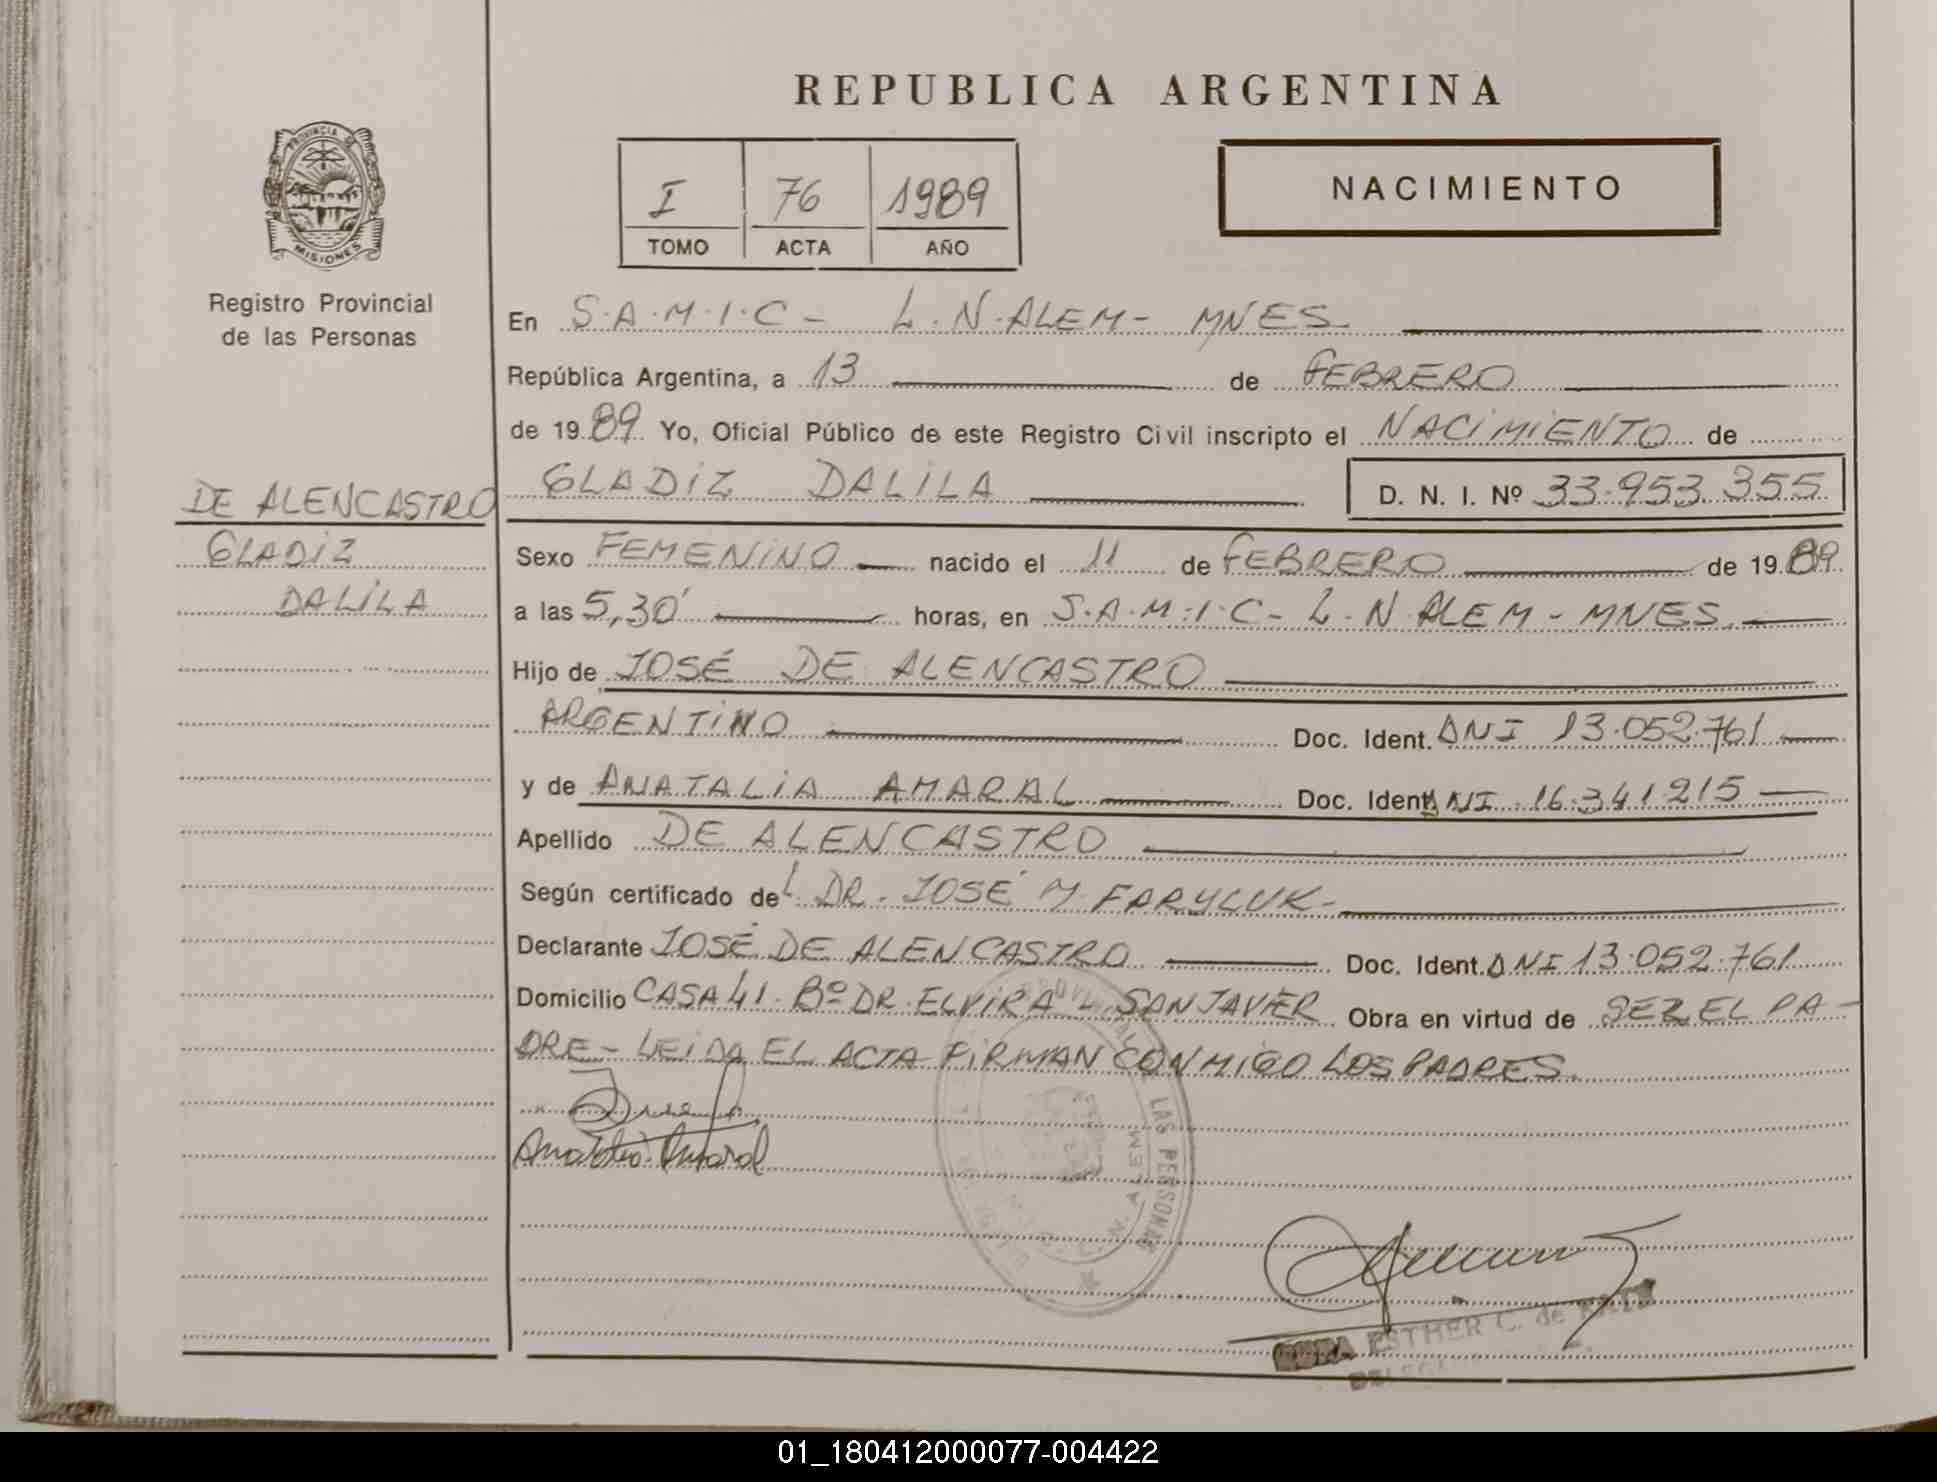 REPUBLICA ARGENTINA
PROVINCIA DE
MISIONES
Registro Provincial
de las Personas
I 76 1989
TOMO ACTA AÑO
NACIMIENTO
En S.A.M.I.C - L.N.ALEM - MNES
República Argentina, a 13 de FEBRERO
de 1989 Yo, Oficial Público de este Registro Civil inscripto el NACIMIENTO de
GLADIZ DALILA D. N. I. Nº 33.953.355
DE ALENCASTRO
GLADIZ
DALILA
Sexo FEMENINO nacido el 11 de FEBRERO de 1989
a las 5,30' horas, en S.A.M.I.C - L.N.ALEM - MNES.
Hijo de JOSÉ DE ALENCASTRO
ARGENTINO Doc. Ident. DNI 13.052.761
y de ANATALIA AMARAL Doc. Ident. DNI 16.341.215
Apellido DE ALENCASTRO
Según certificado del DR. JOSÉ M. FARYLUK-
Declarante JOSÉ DE ALENCASTRO Doc. Ident. DNI 13.052.761
Domicilio CASA 41. Bº DR. ELVIRA - SAN JAVIER Obra en virtud de SER EL PA-
DRE - LEIDA EL ACTA FIRMAN CONMIGO LOS PADRES.
Anatalia Amaral
LAS PERSONAS
L. N. ALEM
ESTHER C. de
01_180412000077-004422